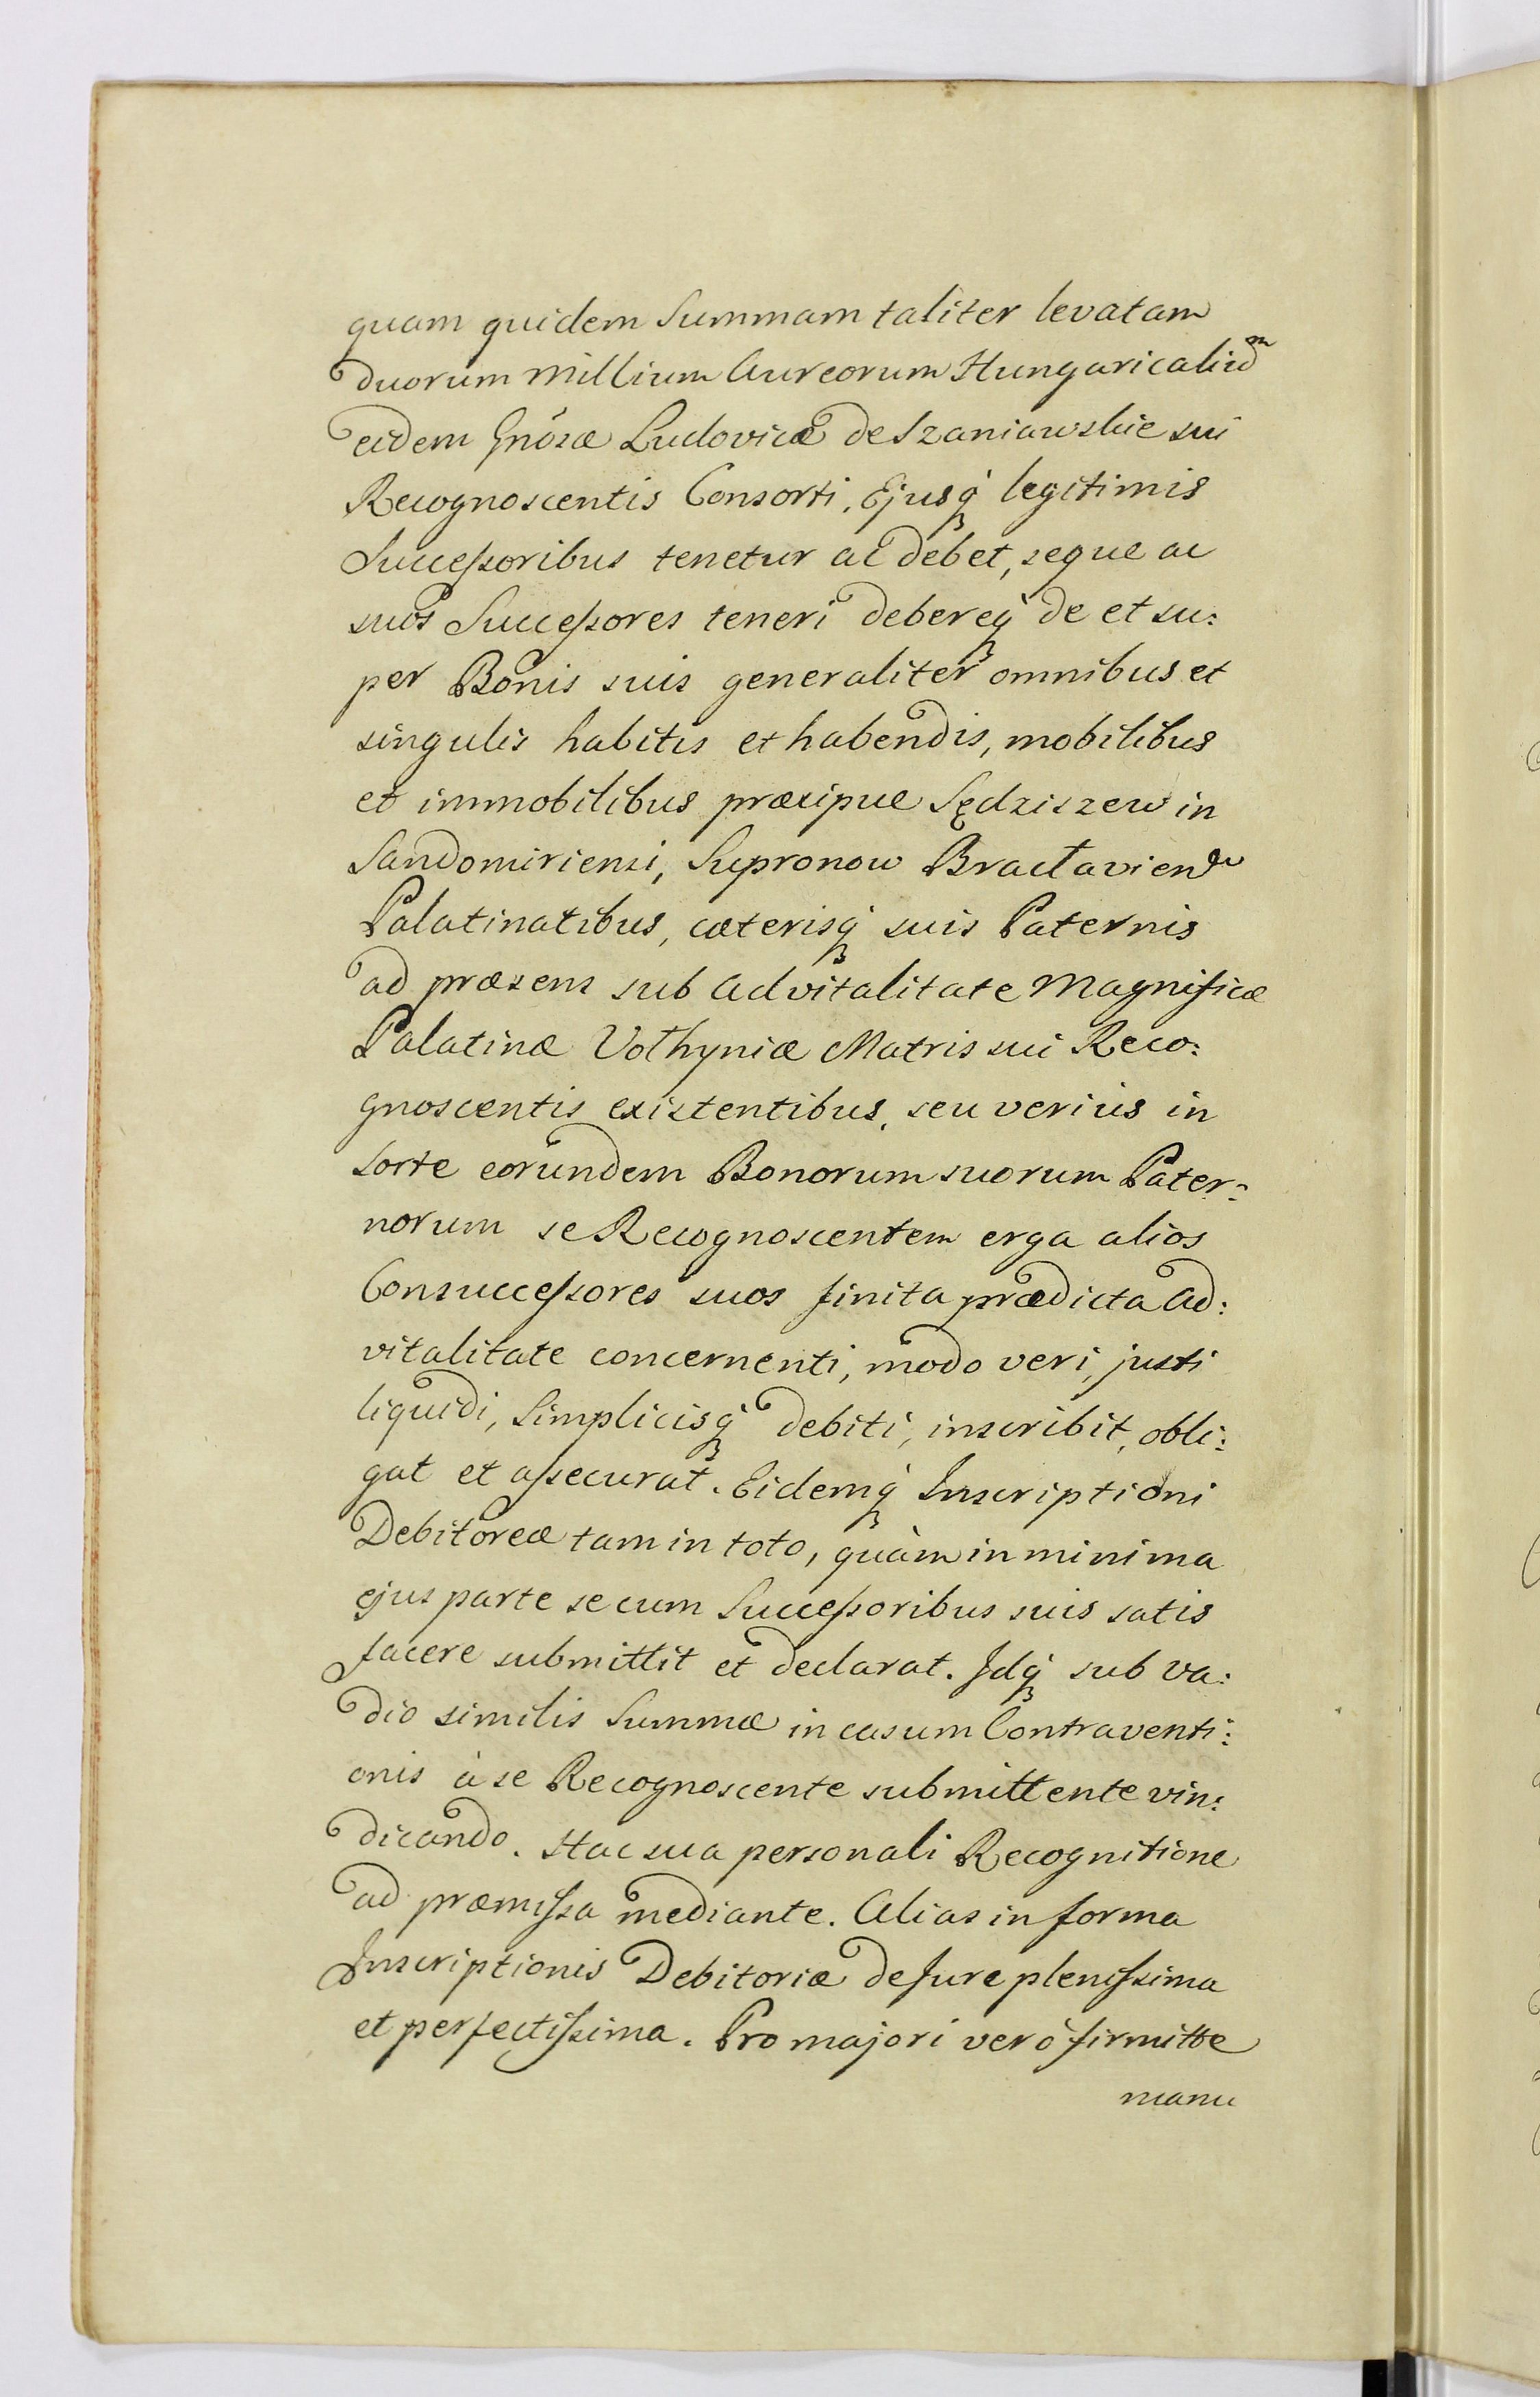 quam quidem Summam taliter levatam
duorum millium Aureorum Hungaricaliū
eidem Gnosæ Ludovicæ de Szaniawskie sui
Recognoscentis Consorti, Ejusq̨ legitimis
Successoribus tenetur ac debet, seque ac
suos Successores teneri debereq̨ de et su:
per Bonis suis generaliter omnibus et
singulis habitis et habendis, mobilibus
et immobilibus præcipue Sędziszew in
Sandomiriensi, Supronow Bractavien
Palatinatibus, cæterisq̨ suis Paternis
ad præsens sub Advitalitate Magnificæ
Palatinæ Volhyniæ Matris sui Reco:
gnoscentis existentibus, seu verius in
sorte eorundem Bonorum suorum Pater:
norum se Recognoscentem erga alios
Consuccessores suos finita prædicta Ad:
vitalitate concernenti, modo veri, justi
liquidi, Simplicisq̨ debiti, inscribit, obli:
gat et assecurat. Eidemq̨ Inscriptioni
Debitoreæ tam in toto, quàm in minima
ejus parte se cum Successoribus suis satis
facere submittit et declarat. Idq̨ sub va:
dio similis Summæ in casum Contraventi:
onis à se Recognoscente submittente vin:
dicando. Hac sua personali Recognitione
ad præmissa mediante. Alias in forma
Inscriptionis Debitoriæ de Jure plenissima
et perfectissima. Pro majori verò firmitte
manu